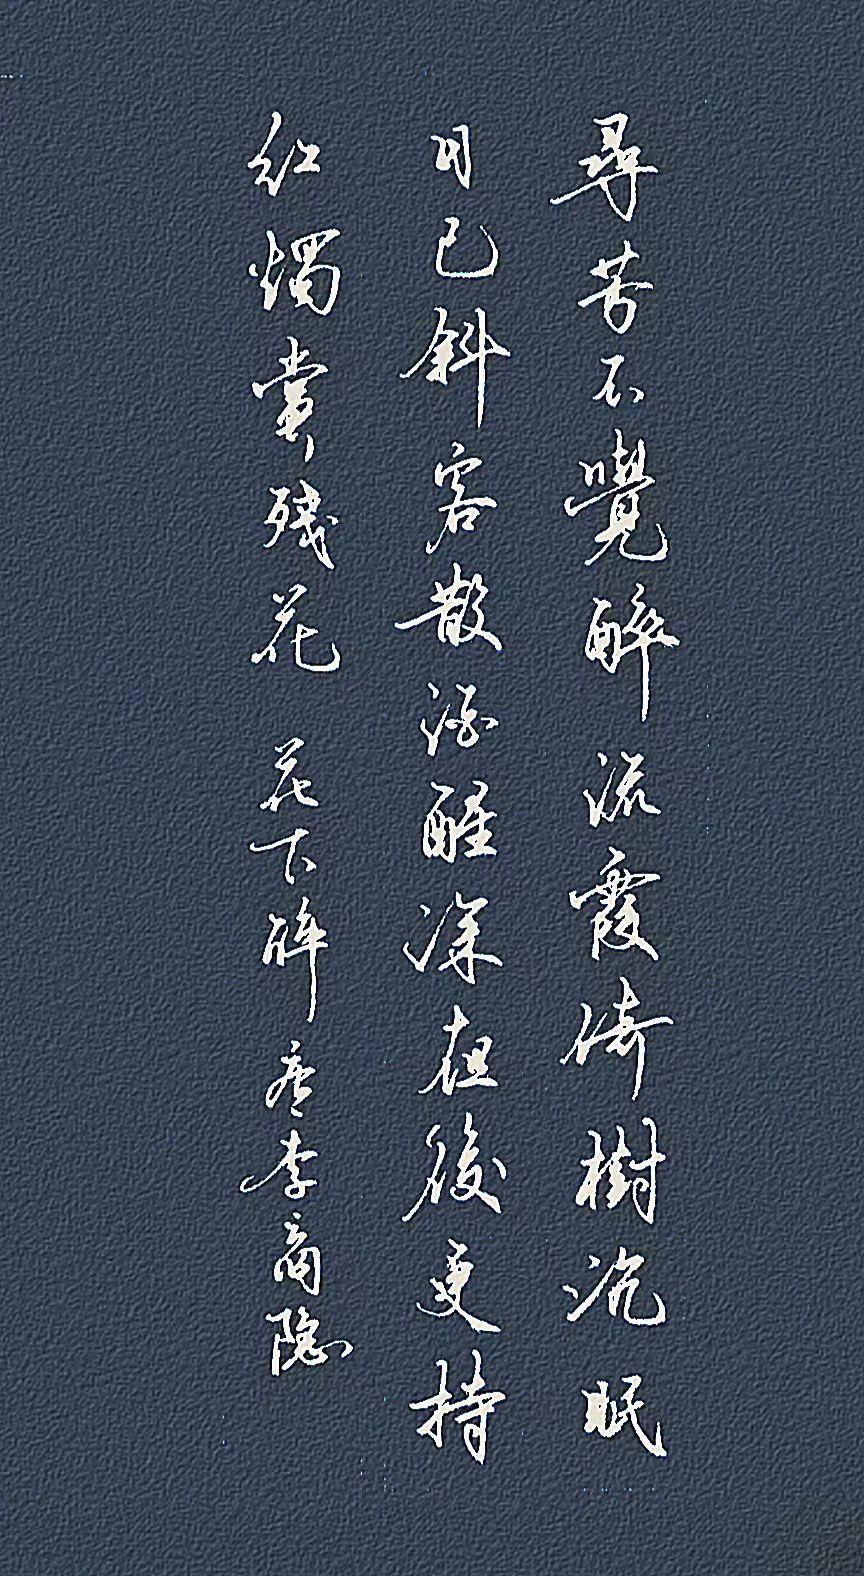 尋芳不覺醉流霞倚樹沉眠
日已斜客散酒醒深夜後更持
紅燭賞殘花 花下醉 唐李商隱